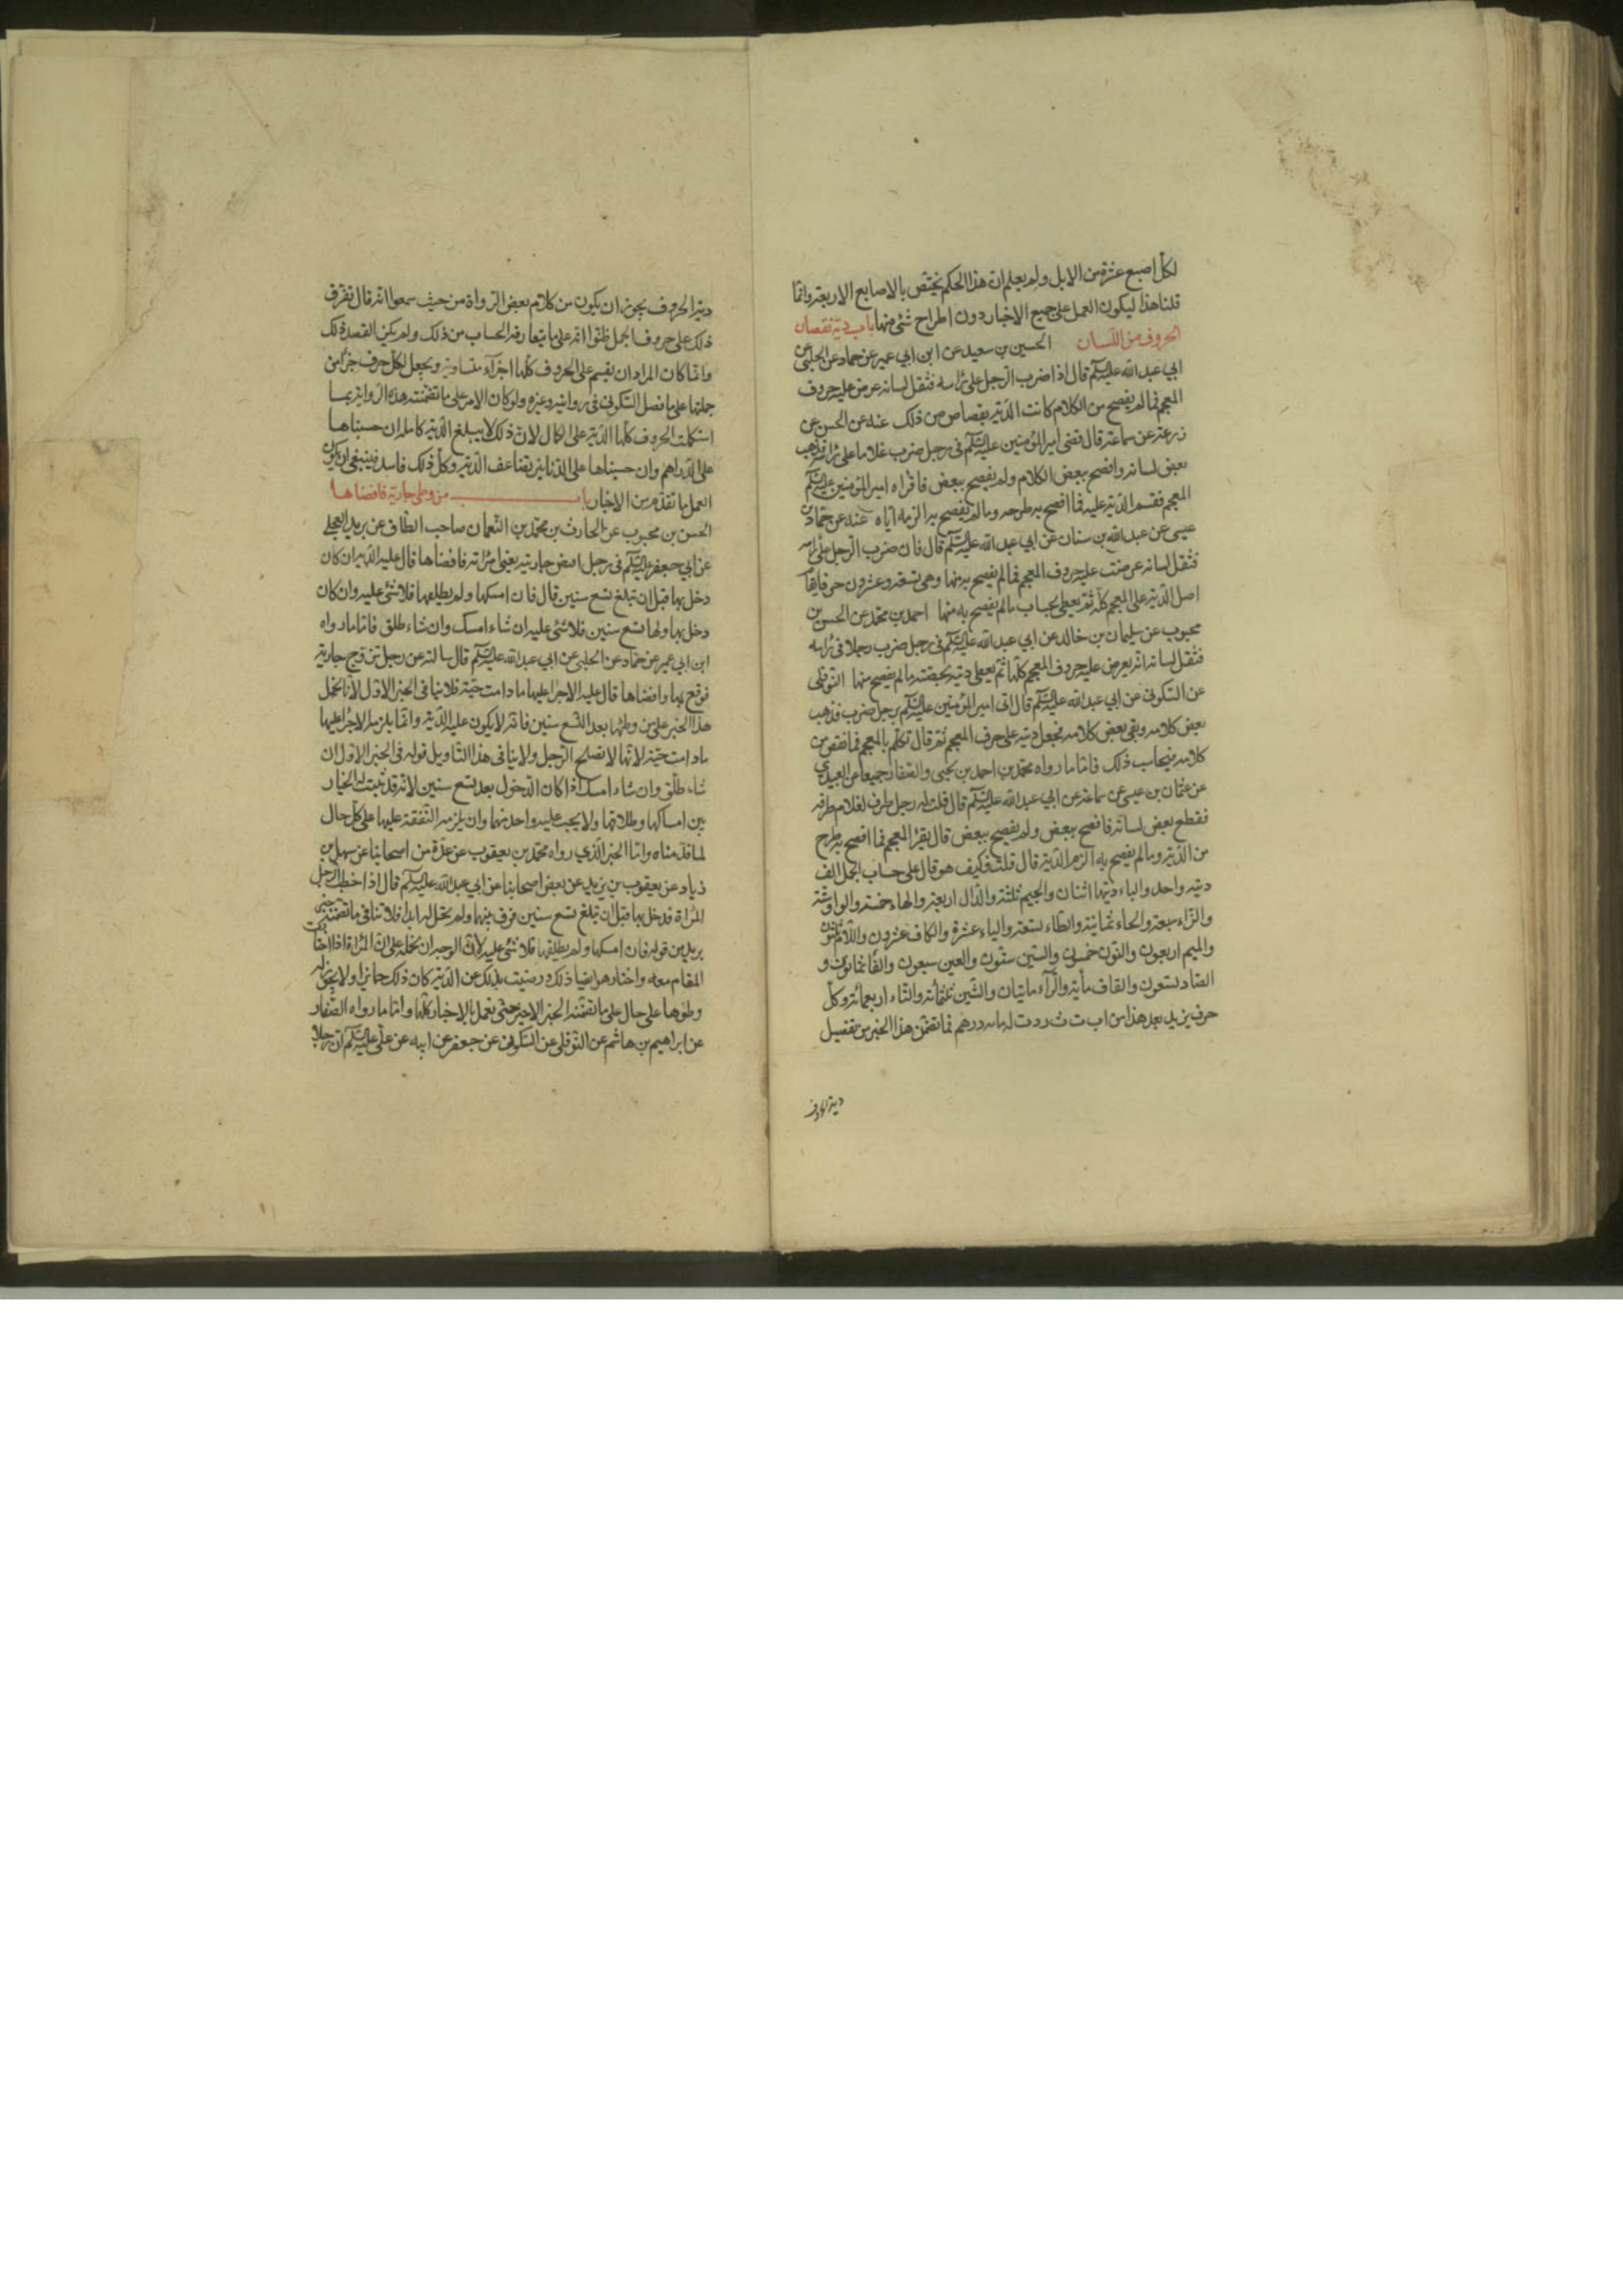 لكل اصبع عشرة من الابل ولم يعلم ان هذا الحكم يختص بالاصابع الاربعة وانما
قلنا هذا ليكون العمل على جميع الاخبار دون اطراح شئ منها باب دية نقصان
الحروف من اللسان الحسين بن سعيد عن ابن ابي عمير عن حماد عن الحلبي عن
ابي عبد الله عليه السلم قال اذا ضرب الرجل على رأسه فثقل لسانه عرض عليه حروف
المعجم فما لم يفصح من الكلام كانت الدية بقصاص من ذلك عنه عن الحسن عن
زرعة عن سماعة قال قضى امير المؤمنين عليه السلم في رجل ضرب غلاما على رأسه فذهب
بعض لسانه وافصح ببعض الكلام ولم يفصح ببعض فاقراه امير المؤمنين عليه السلم
المعجم فقسم الدية عليه فما افصح به طرحه وما لم يفصح به الزمه اياه عنه عن حماد بن
عيسى عن عبد الله بن سنان عن ابي عبد الله عليه السلم قال فان ضرب الرجل على رأسه
فثقل لسانه عرضت عليه حروف المعجم فما لم يفصح به منها وهي تسعة وعشرون حرفا يقام
اصل الدية على المعجم كله ثم يعطى بحساب ما لم يفصح به منها احمد بن محمد عن الحسن بن
محبوب عن سليمان بن خالد عن ابي عبد الله عليه السلم في رجل ضرب رجلا في رأسه
فثقل لسانه انه يعرض عليه حروف المعجم كلها ثم يعطى ديته بحصته ما لم يفصح منها النوفلي
عن السكوني عن ابي عبد الله عليه السلم قال اتى امير المؤمنين عليه السلم برجل ضرب فذهب
بعض كلامه وبقي بعض كلامه فجعل ديته على حرف المعجم ثم قال تكلم بالمعجم فما نقص من
كلامه فبحساب ذلك فاما ما رواه محمد بن احمد بن يحيى والصفار جميعا عن العبيدي
عن عثمان بن عيسى عن سماعة عن ابي عبد الله عليه السلم قال قلت له رجل طرف لغلام طرفة
فقطع بعض لسانه فافصح ببعض ولم يفصح ببعض قال يقرأ المعجم فما افصح به طرح
من الدية وما لم يفصح به الزم الدية قال قلت فكيف هو قال على حساب الجمل الف
ديته واحد والباء ديتها اثنان والجيم ثلثة والدال اربعة والهاء خمسة والواو ستة
والزاء سبعة والحاء ثمانية والطاء تسعة والياء عشرة والكاف عشرون واللام ثلثون
والميم اربعون والنون خمسون والسين ستون والعين سبعون والفا ثمانون و
الصاد تسعون والقاف مأية والرآء مايتان والشين ثلثمائة والتاء اربعمائة وكل
حرف يزيد بعد هذا من اب ت ث ردت له مائة درهم فما تضمن هذا الخبر من تفصيل
دية الحروف
دية الحروف يجوز ان يكون من كلام بعض الرواة من حيث سمعوا انه قال تفرق
ذلك على حروف الجمل ظنوا انه على ما يتعارفه الحساب من ذلك ولم يكن القصد ذلك
وانما كان المراد ان يقسم على الحروف كلها اجزآء متساوية ويجعل لكل حرف جزأ من
جملتها على ما فصل السكوني في روايته وغيره ولو كان الامر على ما تضمنته هذه الرواية بما
استكملت الحروف كلها الدية على الكمال لان ذلك لا يبلغ الدية كاملة ان حسبناها
على الدراهم وان حسبناها على الدنانير يتضاعف الدية وكل ذلك فاسد فينبغي ان يكون
العمل بما تقدم من الاخبار باب من وطى جارية فافضاها
الحسن بن محبوب عن الحارث بن محمد بن النعمان صاحب الطاق عن بريد العجلي
عن ابي جعفر عليه السلم في رجل افتض جاريته يعني امرأته فافضاها قال عليه الدية ان كان
دخل بها قبل ان تبلغ تسع سنين قال فان امسكها ولم يطلقها فلا شئ عليه وان كان
دخل بها ولها تسع سنين فلا شئ عليه ان شاء امسك وان شاء طلق فاما ما رواه
ابن ابي عمير عن حماد عن الحلبي عن ابي عبد الله عليه السلم قال سالته عن رجل تزوج جارية
فوقع بها وافضاها قال عليه الاجراء عليها ما دامت حية فلا ينافي الخبر الاول لانا نحمل
هذا الخبر على من وطئها بعد التسع سنين فانه لا يكون عليه الدية وانما يلزمه الاجراء عليها
ما دامت حية لانها لا تصلح الرجل ولا ينافي هذا التاويل قوله في الخبر الاول ان
شاء طلق وان شاء امسك اذا كان الدخول بعد تسع سنين لانه قد ثبت له الخيار
بين امساكها وطلاقها ولا يجب عليه واحد منهما وان يلزمه النفقة عليها على كل حال
لما قدمناه واما الخبر الذي رواه محمد بن يعقوب عن عدة من اصحابنا عن سهل بن
زياد عن يعقوب بن يزيد عن بعض اصحابنا عن ابي عبد الله عليه السلم قال اذا خطب الرجل
المراة فدخل بها قبل ان تبلغ تسع سنين فرق بينهما ولم تحل له ابدا فلا تنافي ما تضمنه خبر
بريد من قوله فان امسكها ولم يطلقها فلا شئ عليه لان الوجه ان نحمله على ان المراة اذا اختارت
المقام معه واختار هو ايضا ذلك ورضيت بذلك عن الدية كان ذلك جايزا ولا يجوز له
وطؤها على حال على ما تضمنه الخبر الاخير حتى نعمل بالاخبار كلها واما ما رواه الصفار
عن ابراهيم بن هاشم عن النوفلي عن السكوني عن جعفر عن ابيه عن علي عليه السلم ان رجلا